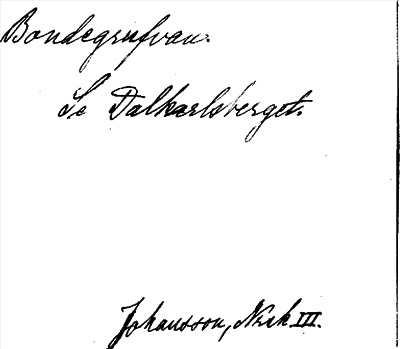 Bondegrufvan.
Se Dalkarlsberget.
Johansson, Nzak III.